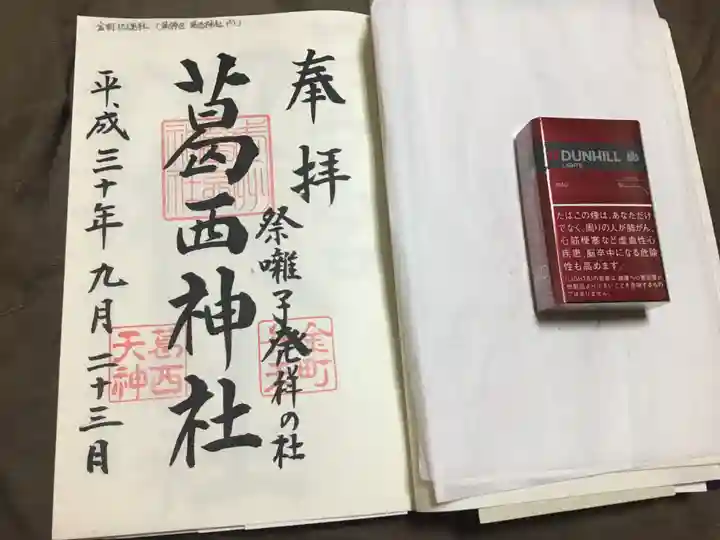 奉拝
祭囃子発祥の社
葛西神社
平成三十年九月二十三日
葛西
天神
金町
DUNHILL
LIGHTS
たばこの煙は、あなただけ
でなく、周りの人が肺がん、
心筋梗塞など虚血性心
疾患、脳卒中になる危険
性も高めます。